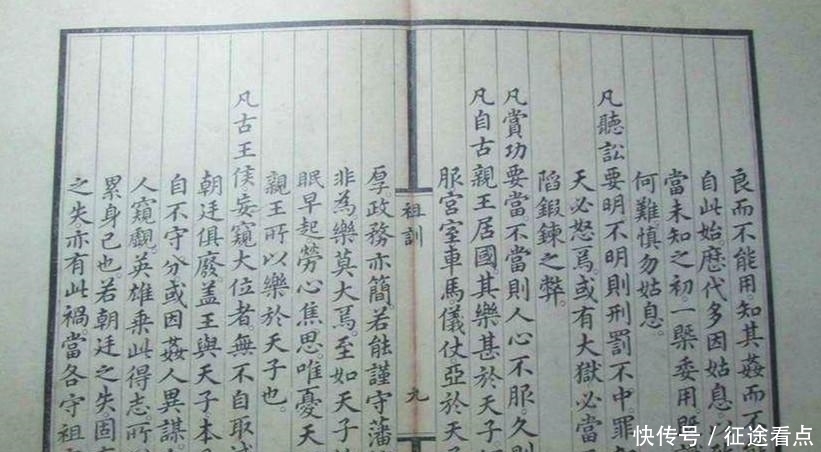 良而不能用。知其姦而不
自此始。歷代多因姑息。以
當未知之初。一槩委用。既
何難。慎勿姑息。
凡聽訟要明。不明則刑罰不中。罪
天必怒焉。或有大獄必當
陷鍛鍊之弊。
凡賞功要當。不當則人心不服。久則
凡自古親王居國。其樂甚於天子。
服宮室車馬。儀仗亞於天子
祖訓
九
厚。政務亦簡。若能謹守藩
非為。樂莫大焉。至如天子
眠早起。勞心焦思。唯憂天
親王所以樂於天子也。
凡古王侯。妄窺大位者。無不自取
朝廷俱廢。蓋王與天子。本
自不守分。或因姦人異謀。
人窺覷。英雄乘此得志。所
累身己也。若朝廷之失。固
之失。亦有此禍。當各守祖
快传号/征途看点